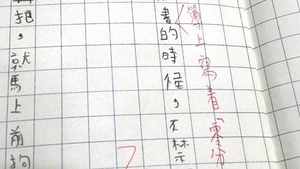 簿上寫着零分
書的時候，不禁
把，就馬上前